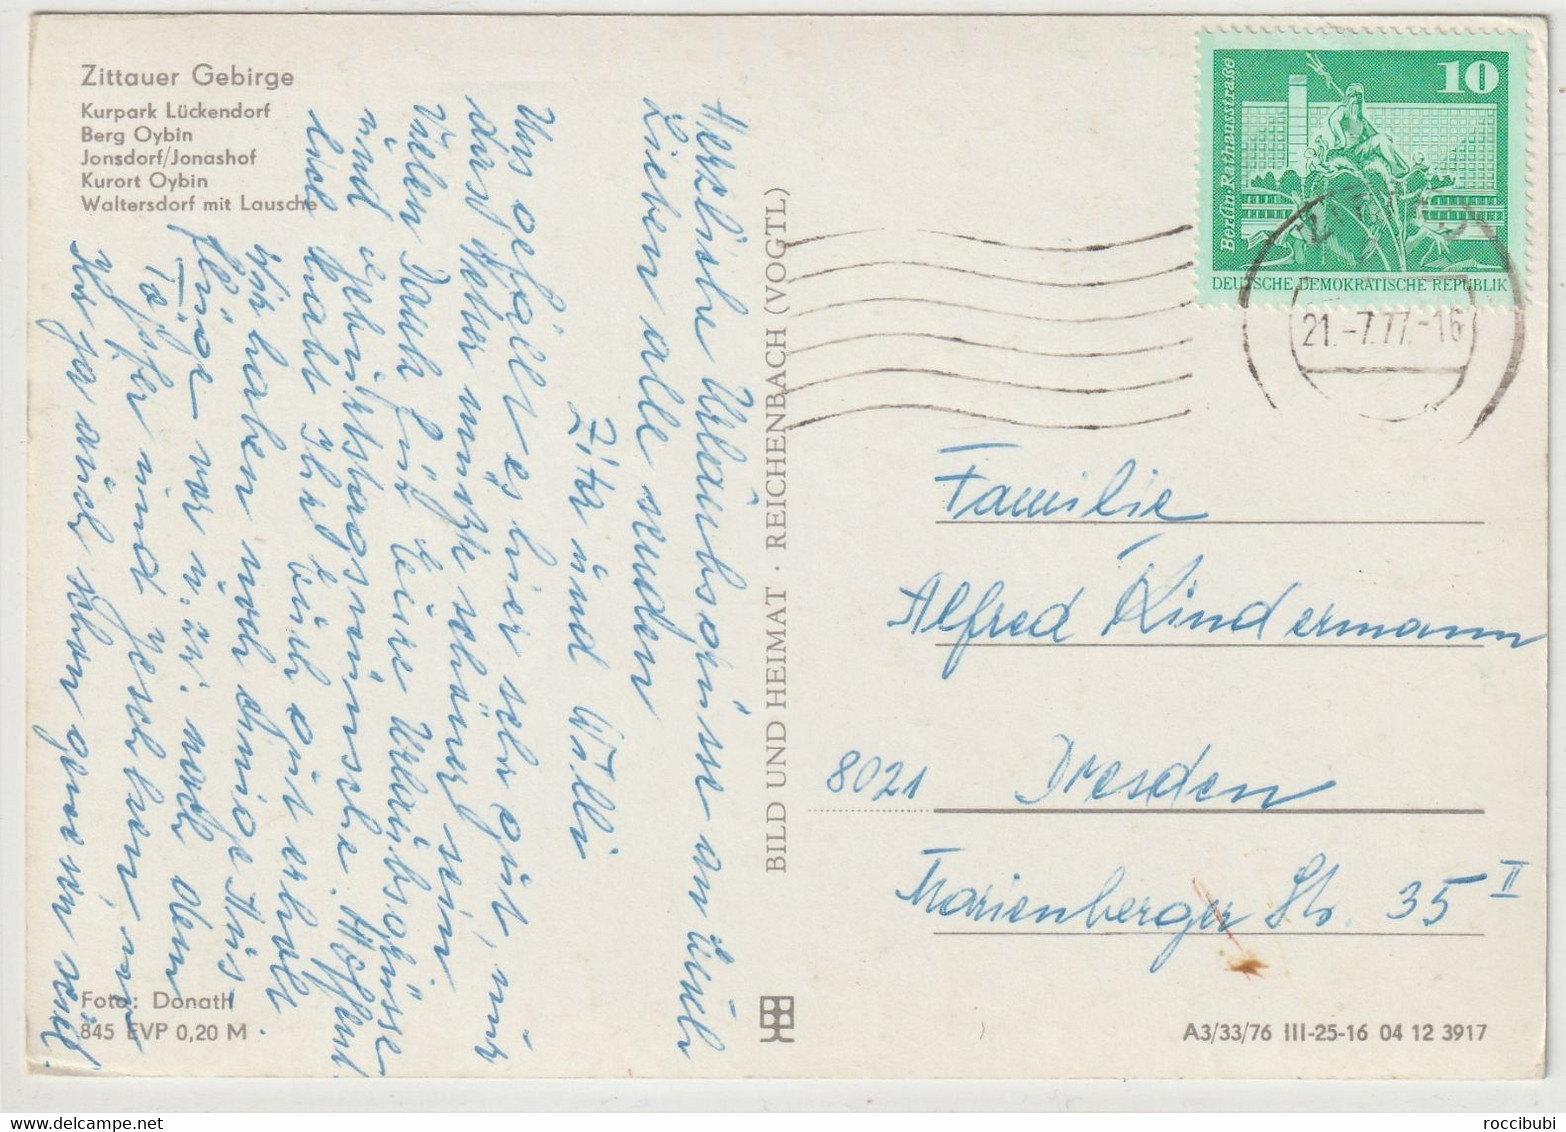 Zittauer Gebirge
Kurpark Lückendorf
Berg Oybin
Jonsdorf/Jonashof
Kurort Oybin
Waltersdorf mit Lausche
Herzliche Urlaubsgrüsse an Euch
Lieben alle senden
Zita und Willi
Uns gefällt es hier sehr gut, nur
das Wetter müßte schöner sein
Vielen Dank für Eure Urlaubsgrüsse
und Geburtstagswünsche. Hoffent
lich habt Ihr Euch gut erholt
Wir haben noch einige Aus
flüge vor u. zw. nach dem
Töpfer und
Ihr ja auch schon gewesen seid.
Foto: Donath
845 EVP 0,20 M
BILD UND HEIMAT · REICHENBACH (VOGTL)
10
Berlin, Rathausstraße
DEUTSCHE DEMOKRATISCHE REPUBLIK
ZITTAU
21.-7.77.-16
Familie
Alfred Kindermann
8021 Dresden
Marienberger Str. 35 II
A3/33/76 III-25-16 04 12 3917
roccibubi